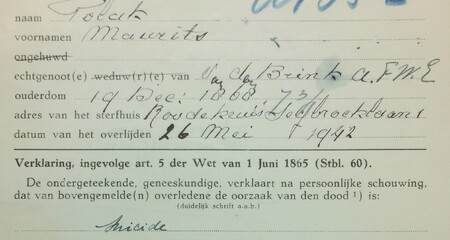 naam Polak
voornamen Maurits
ongehuwd
echtgenoot(e) weduw(r)(e) van v/d Brink A.F.W.E
ouderdom 19 Dec: 1868 73 j
adres van het sterfhuis Roodekruis
datum van het overlijden 26 Mei 1942
Verklaring, ingevolge art. 5 der Wet van 1 Juni 1865 (Stbl. 60).
De ondergeteekende, geneeskundige, verklaart na persoonlijke schouwing,
dat van bovengemelde(n) overledene de oorzaak van den dood ¹) is:
(duidelijk schrift a.u.b.)
Suicide